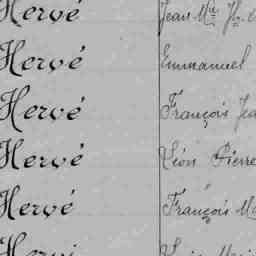 Hervé Jean Mie Jh
Hervé Emmanuel
Hervé François Jea
Hervé Léon Pierre
Hervé François Ma
Hervi